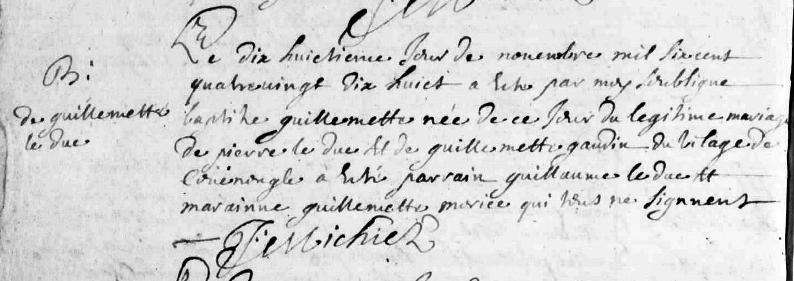 B:
de guillemette
le duc
Le dix huictieme Jour de novembre mil six cent
quatrevingt dix huict a este par moy soubsigné
baptisée guillemette née de ce Jour du legitime mariage
de pierre le duc et de guillemette gaudin du vilage de
a esté parrain guillaume le duc et
marainne guillemette morice qui tous ne signnent